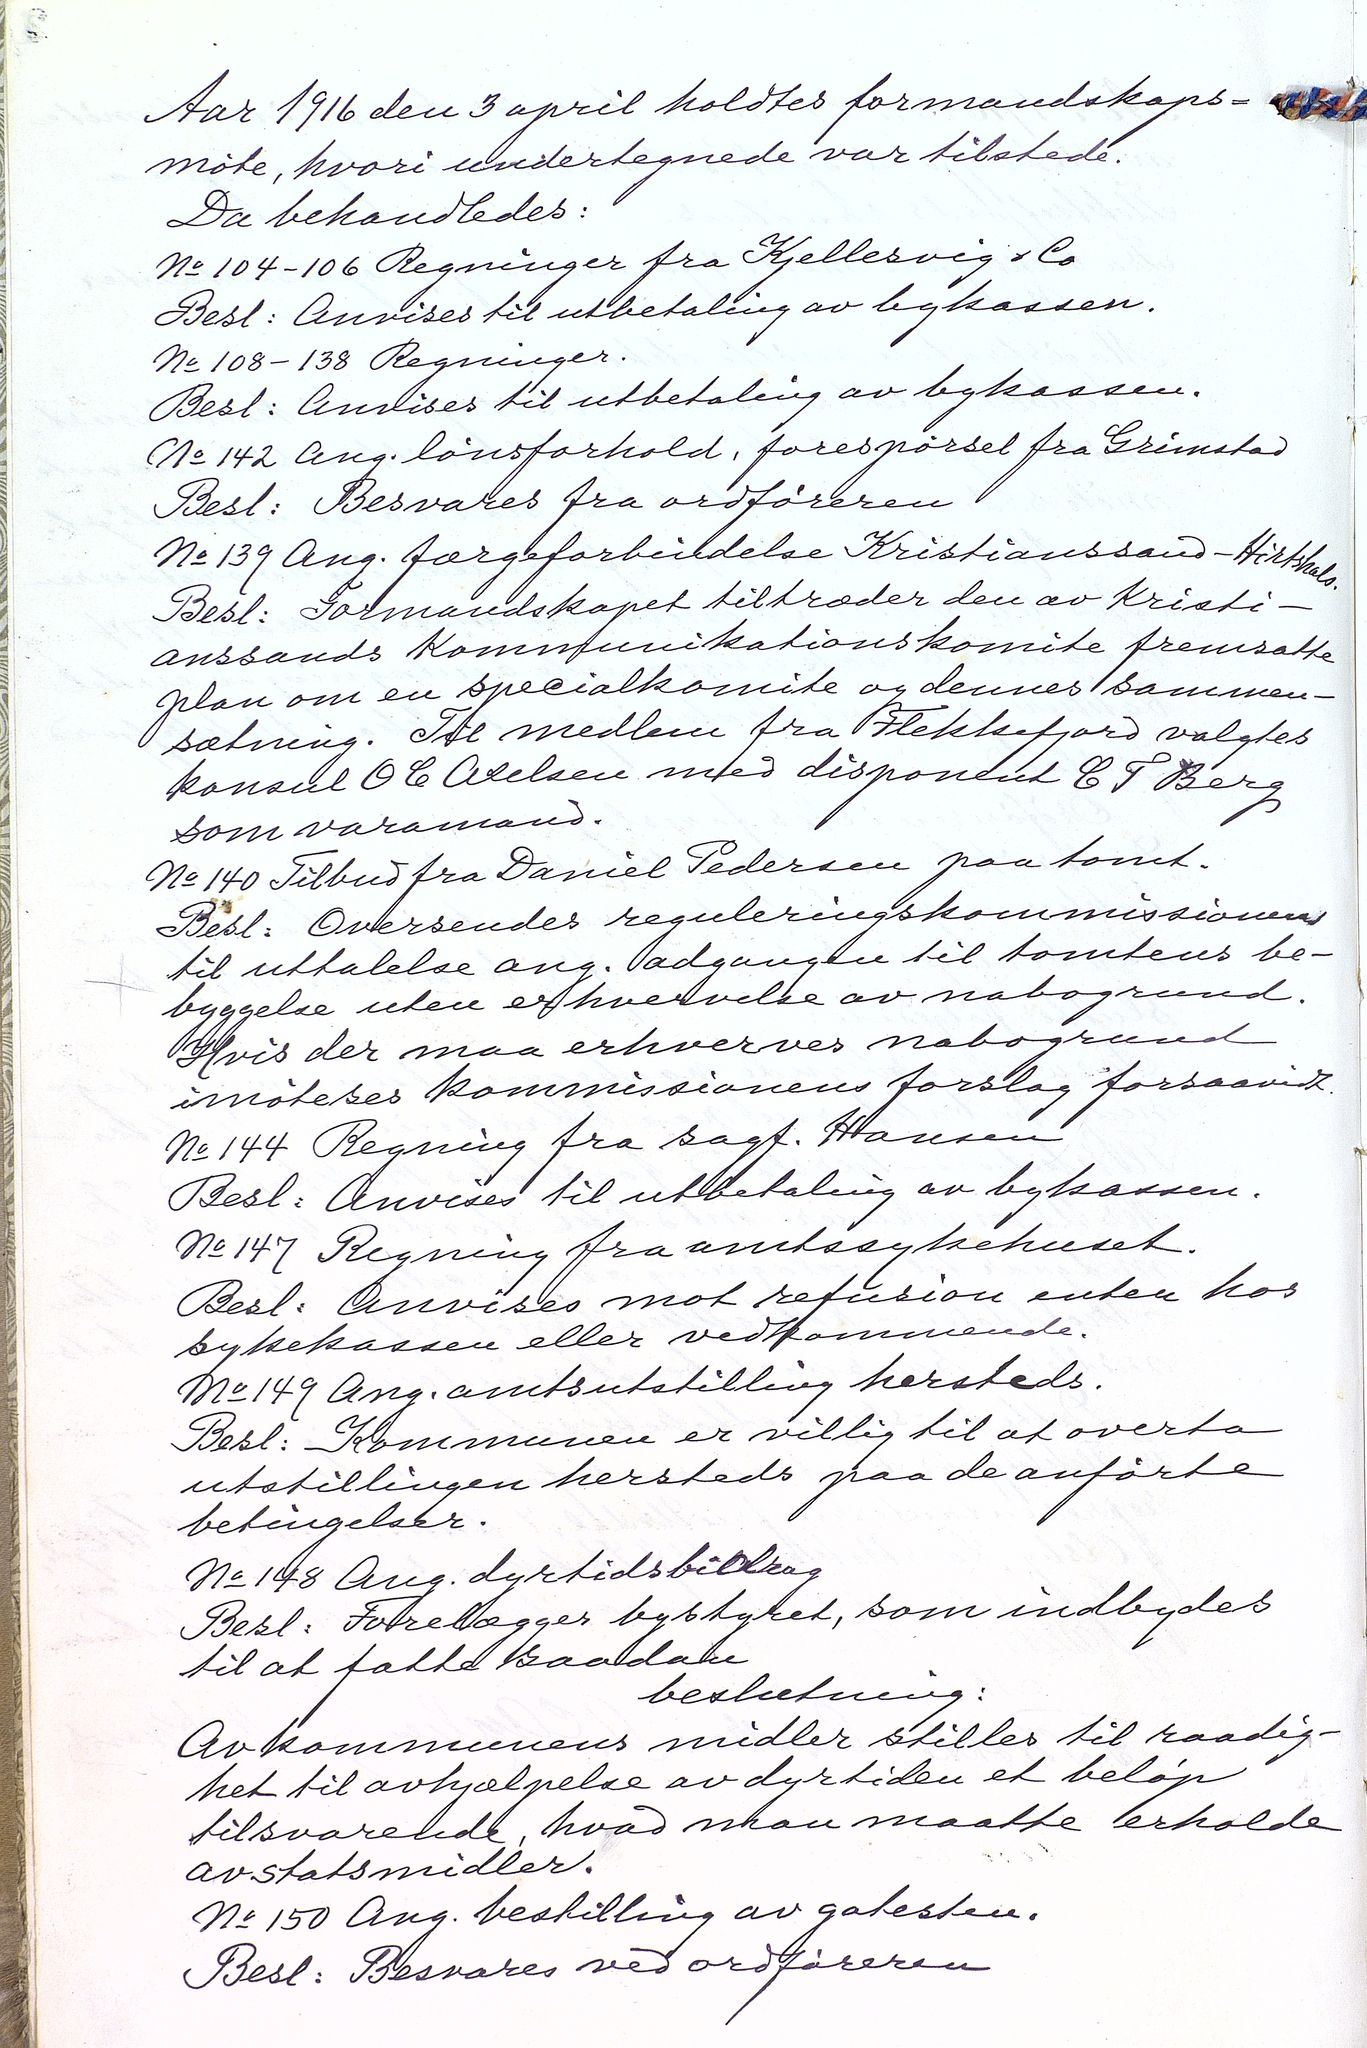 Aar 1916 den 3 april holdtes formandskaps=
möte, hvori undertegnede var tilstede.
Da behandledes:
No 104-106 Regninger fra Kjellesvig & Co
Besl: Anvises til utbetaling av bykassen.
No 108-138 Regninger.
Besl: Anvises til utbetaling av bykassen.
No 142 Ang. lönsforhold, forespörsel fra Grimstad
Besl: Besvares fra ordföreren
No 139 Ang. færgeforbindelse Kristianssand-Hirtshals.
Besl: Formandskapet tiltræder den av Kristi-
anssands Kommunikationskomite fremsatte
plan om en specialkomite og dennes sammen-
sætning. Til medlem fra Flekkefjord valgtes
konsul O C Axelsen med disponent C F Berg
som varamand.
No 140 Tilbud fra Daniel Pedersen paa tomt.
Besl: Oversendes reguleringskommissionens
til uttalelse ang. adgangen til tomtens be-
byggelse uten erhvervelse av nabogrund.
Hvis der maa erhverves nabogrund
imöteses kommissionens forslag forsaavidt.
No 144 Regning fra sagf. Hansen
Besl: Anvises til utbetaling av bykassen.
No 147 Regning fra amtssykehuset.
Besl: Anvises mot refusion enten hos
sykekassen eller vedkommende.
No 149 Ang. amtsutstilling hersteds.
Besl: Kommunen er villig til at overta
utstillingen hersteds paa de anförte
betingelser.
No 148 Ang. dyrtidsbidrag
Besl: Forelægger bystyret, som indbydes
til at fatte saadan
beslutning:
Av kommunens midler stilles til raadig-
het til avhjælpelse av dyrtiden et belöp
tilsvarende, hvad man maatte erholde
av statsmidler.
No 150 Ang. bestilling av gatesten.
Besl: Besvares ved ordföreren